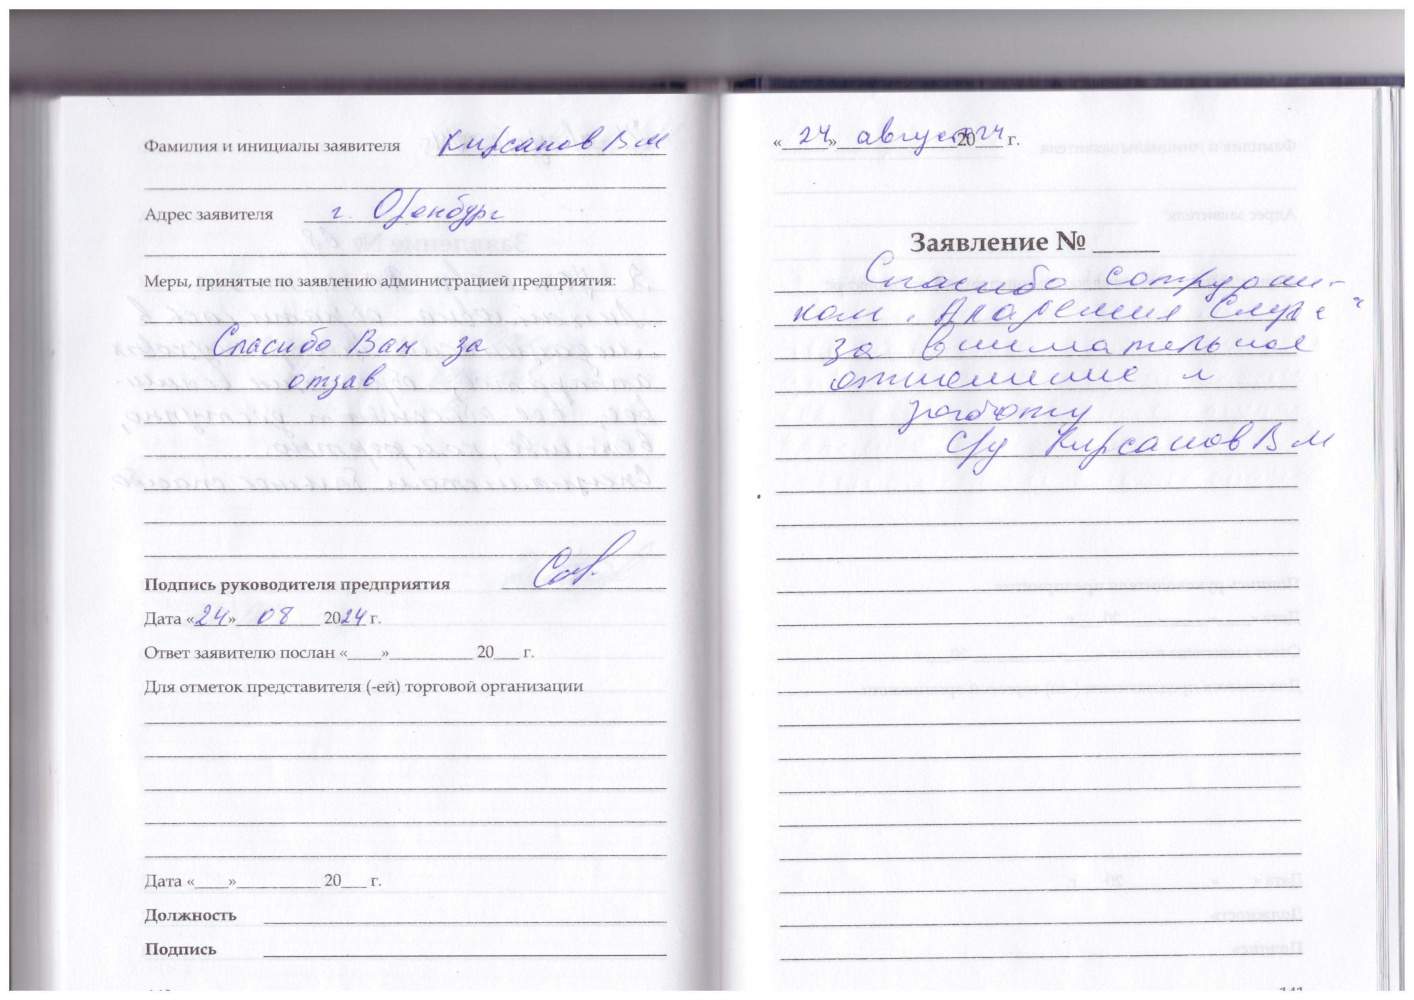 Фамилия и инициалы заявителя Кирсанов В М
Адрес заявителя г. Оренбург
Меры, принятые по заявлению администрацией предприятия:
Спасибо Вам за
отзыв
Подпись руководителя предприятия
Дата «24» 08 2024 г.
Ответ заявителю послан «____»__________ 20___ г.
Для отметок представителя (-ей) торговой организации
Дата «____»__________ 20___ г.
Должность
Подпись
«24» август 2024 г.
Заявление № _____
Спасибо сотрудни-
кам "Академия Слуха"
за внимательное
отношение и
работу
с/у Кирсанов В М